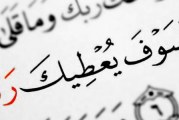 ربك وما
سَوْفَ يُعْطِيكَ رَ
٦